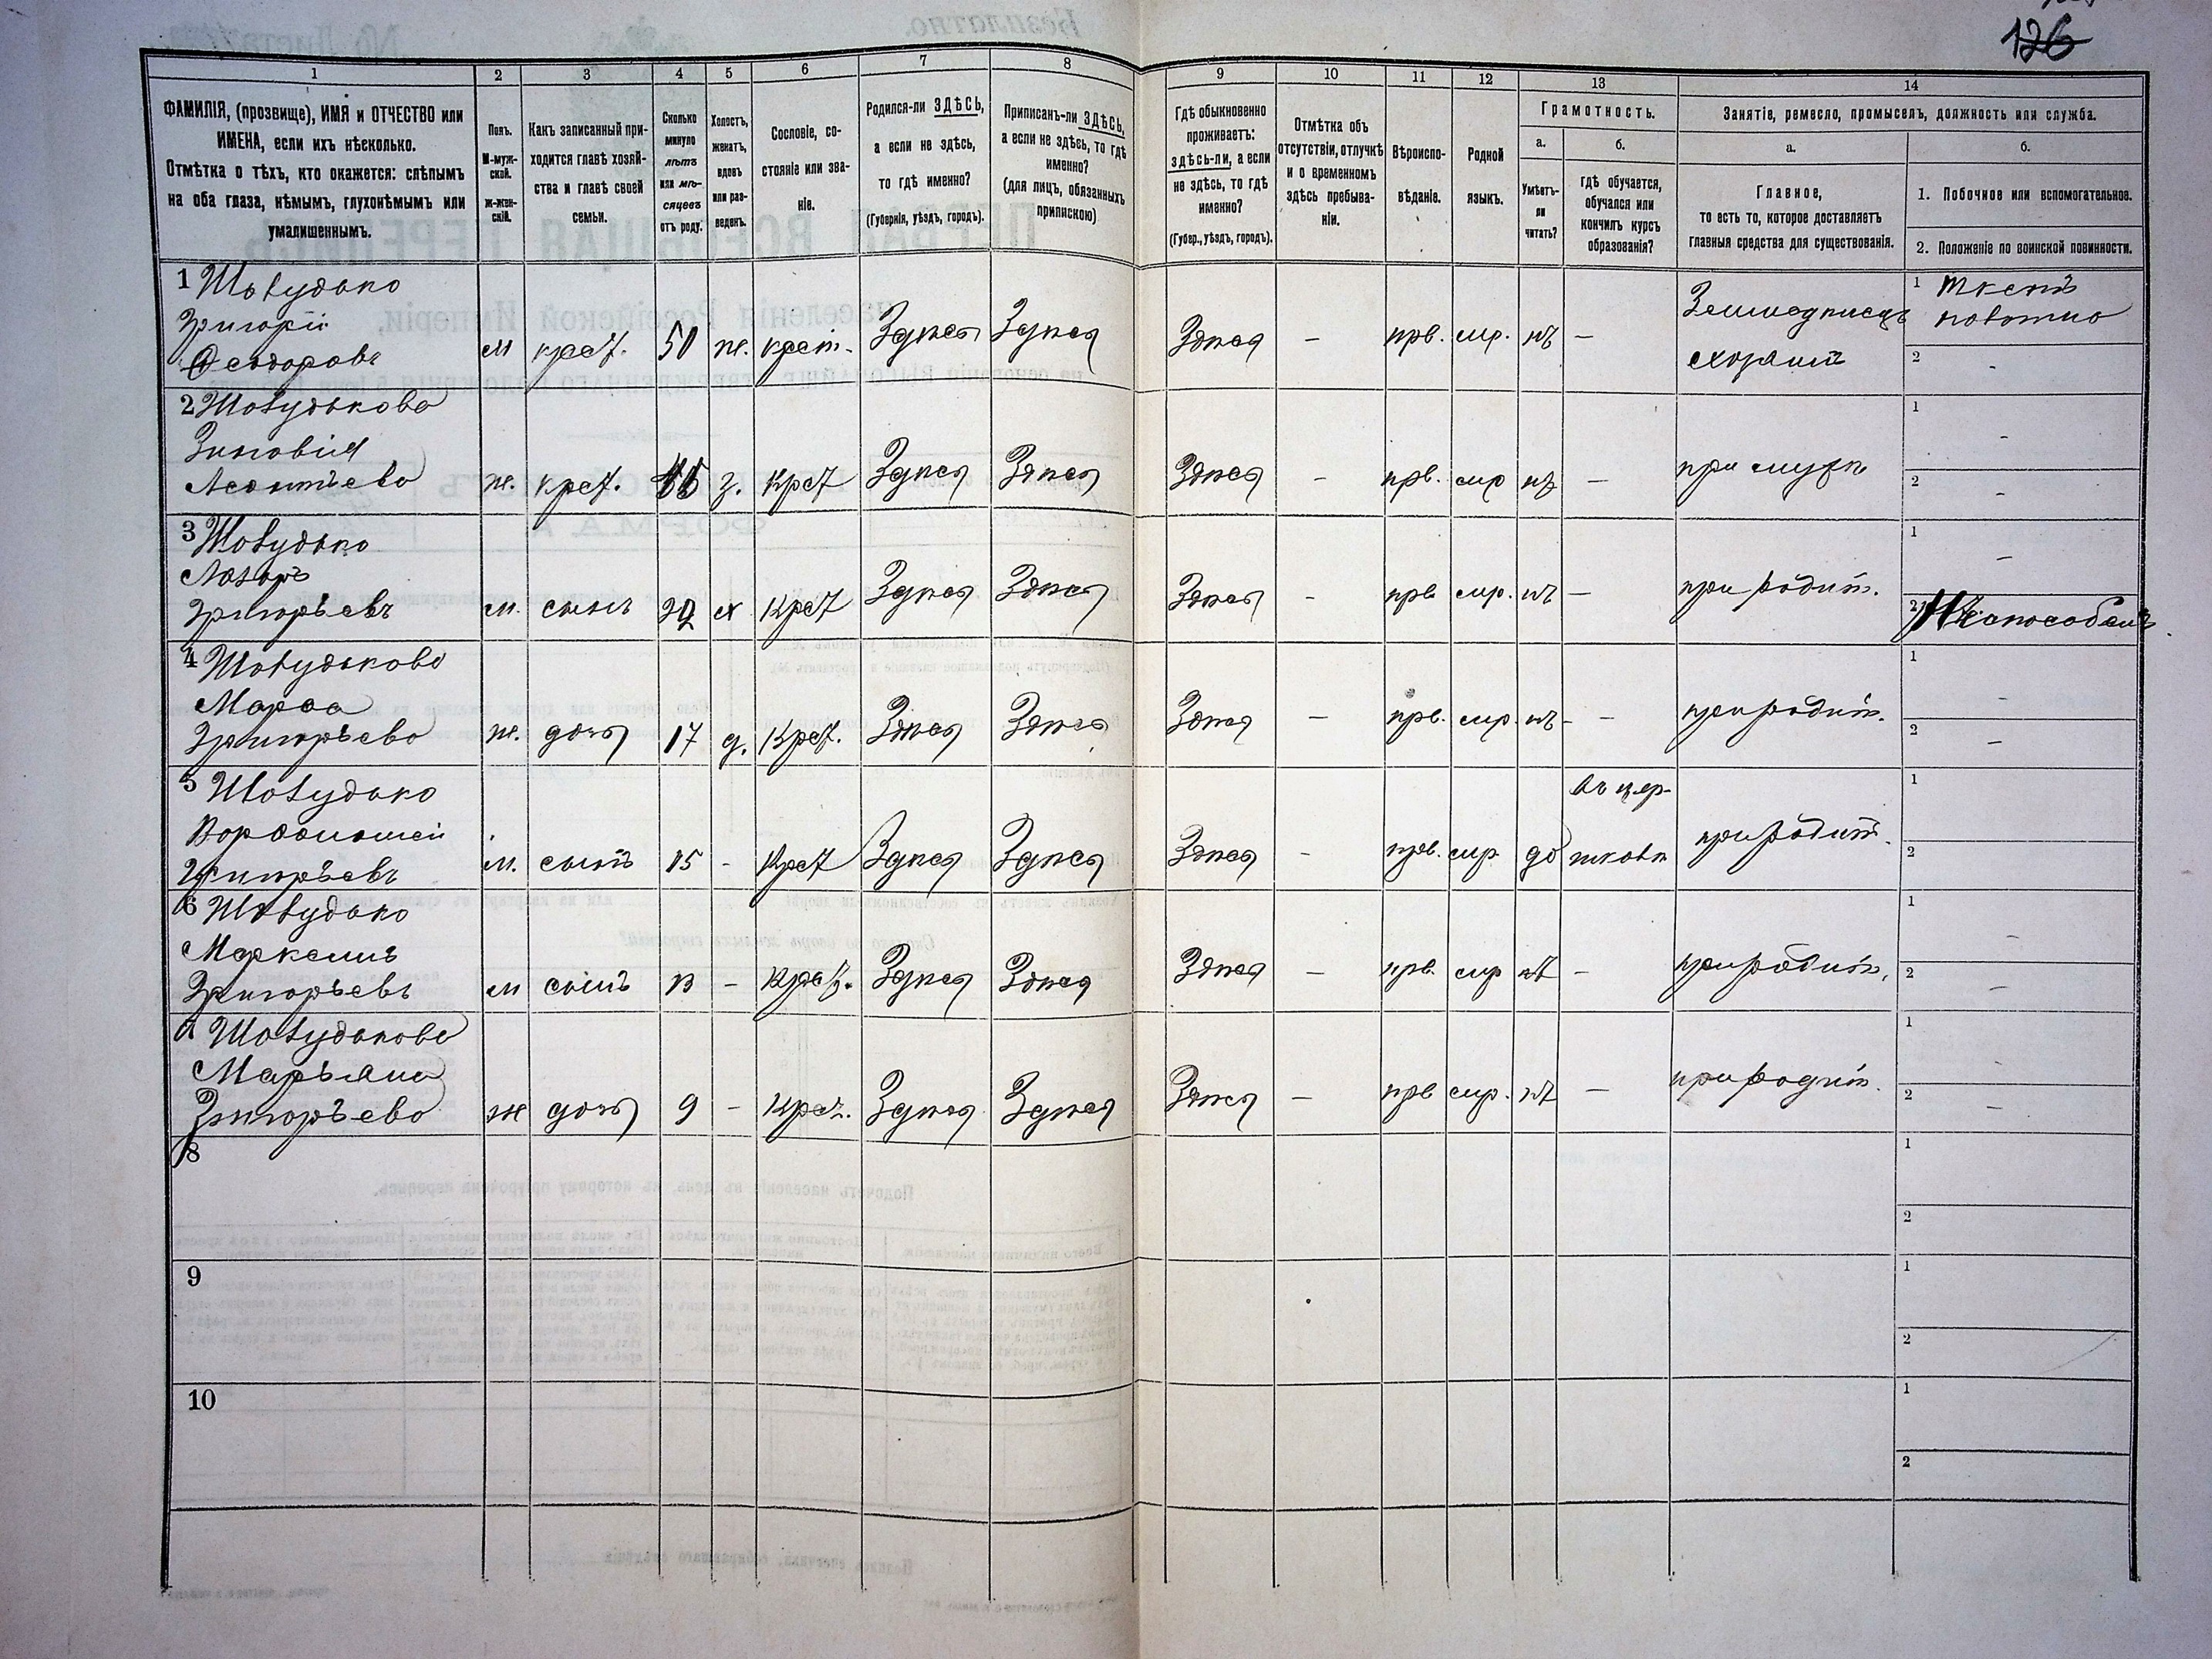 126
1
2
3
4
5
6
7
8
9
10
11
12
13
14
ФАМИЛІЯ, (прозвище), ИМЯ и ОТЧЕСТВО или
ИМЕНА, если ихъ нѣсколько.
Отмѣтка о тѣхъ, кто окажется: слѣпымъ
на оба глаза, нѣмымъ, глухонѣмымъ или
умалишеннымъ.
Полъ.
М-муж-
ской.
Ж-жен-
скій.
Какъ записанный при-
ходится главѣ хозяй-
ства и главѣ своей
семьи.
Сколько
минуло
лѣтъ
или мѣ-
сяцевъ
отъ роду.
Холостъ,
женатъ,
вдовъ
или раз-
веденъ.
Сословіе, со-
стояніе или зва-
ніе.
Родился-ли ЗДѢСЬ,
а если не здѣсь,
то гдѣ именно?
(Губернія, уѣздъ, городъ).
Приписанъ-ли ЗДѢСЬ,
а если не здѣсь, то гдѣ
именно?
(для лицъ, обязанныхъ
припискою)
Гдѣ обыкновенно
проживаетъ:
здѣсь-ли, а если
не здѣсь, то гдѣ
именно?
(Губер., уѣздъ, городъ).
Отмѣтка объ
отсутствіи, отлучкѣ
и о временномъ
здѣсь пребыва-
ніи.
Вѣроиспо-
вѣданіе.
Родной
языкъ.
Грамотность.
а.
Умѣетъ-
ли
читать?
б.
гдѣ обучается,
обучался или
кончилъ курсъ
образованія?
Занятіе, ремесло, промыселъ, должность или служба.
а.
Главное,
то есть то, которое доставляетъ
главныя средства для существованія.
б.
1. Побочное или вспомогательное.
2. Положеніе по воинской повинности.
1
Григорій
Феодоровъ
м
50
ж.
крест.
Здѣсь
Здѣсь
Здѣсь
-
прв.
мр.
нѣ
-
1 Ткетъ
полотно
2 -
2
Зиновія
Леонтьева
ж.
крест
Здѣсь
Здѣсь
Здѣсь
-
прв.
мр
нѣ
-
при мужѣ
1 -
2 -
3
Лазарь
Григорьевъ
м.
сынъ
22
х
крест
Здѣсь
Здѣсь
Здѣсь
-
прв
мр.
нѣ
-
при родит.
1 -
2 Неспособенъ
4
Марфа
Григорьева
ж.
дочь
17
д.
Крест.
Здѣсь
Здѣсь
Здѣсь
-
прв.
мр.
нѣ
-
при родит.
1 -
2 -
5
Варфоломей
Григорьевъ
м.
сынъ
15
-
Крест
Здѣсь
Здѣсь
Здѣсь
-
прв.
мр
да
въ цер-
школѣ
при родит.
1
2
6
Григорьевъ
м
сынъ
13
-
Крест.
Здѣсь
Здѣсь
Здѣсь
-
прв.
мр
нѣ
-
при родит.
1 -
2 -
7
Марьяна
Григорьева
ж
дочь
9
-
Крест.
Здѣсь
Здѣсь
Здѣсь
-
прв
мр.
нѣ
-
при родит.
1 -
2 -
8
1
2
9
1
2
10
1
2